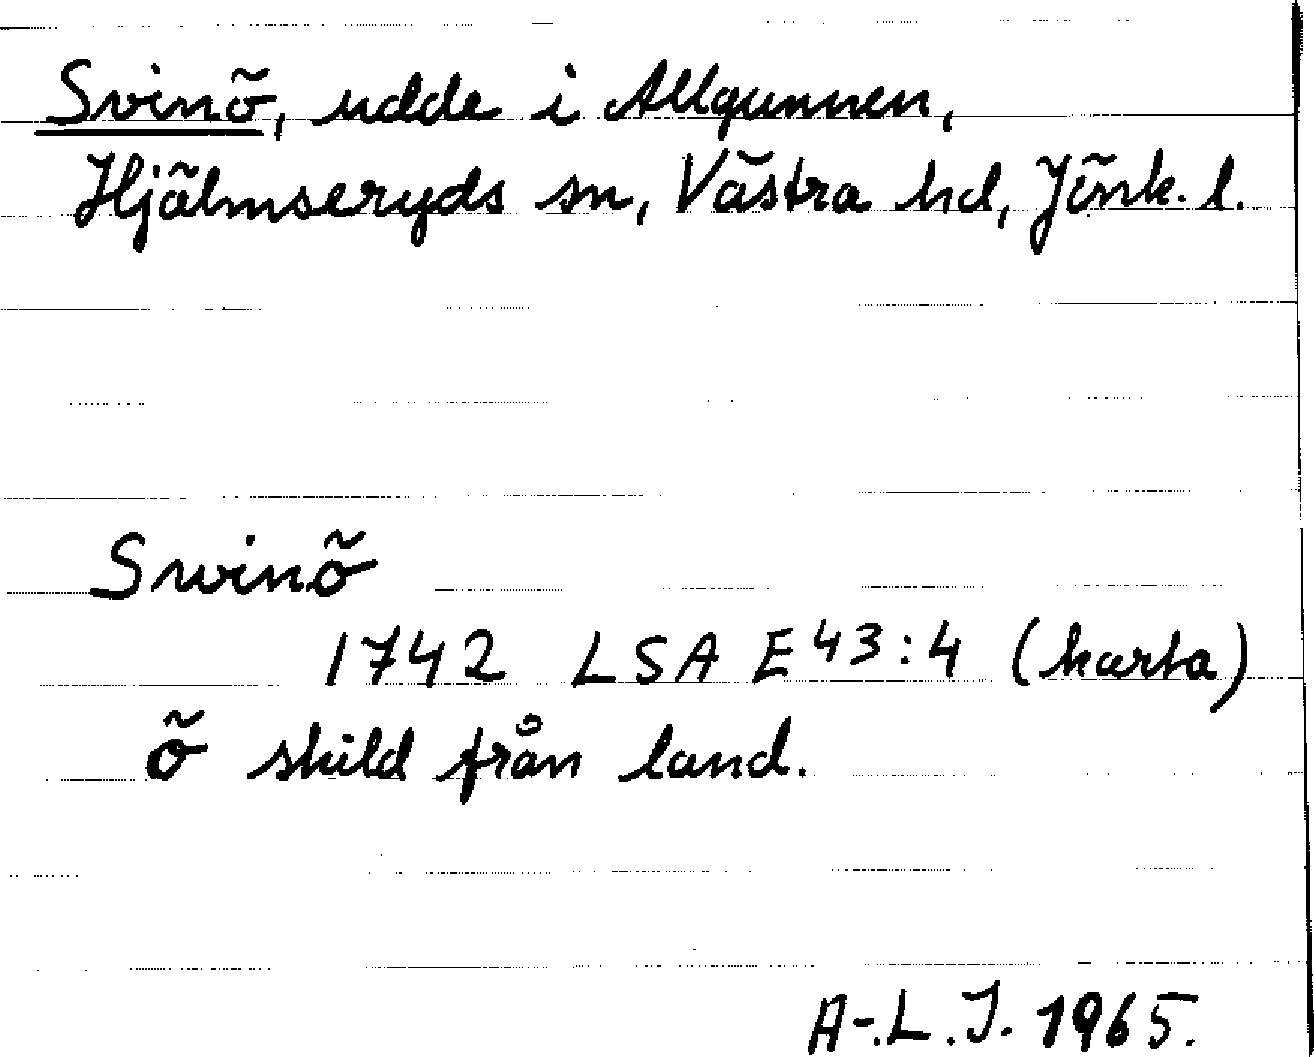 Svinö, udde i Allgunnen,
Hjälmseryds sn, Västra hd, Jönk. l.
Swinö
1742 LSA E 43:4 (karta)
ö skild från land.
A-.L.J. 1965.